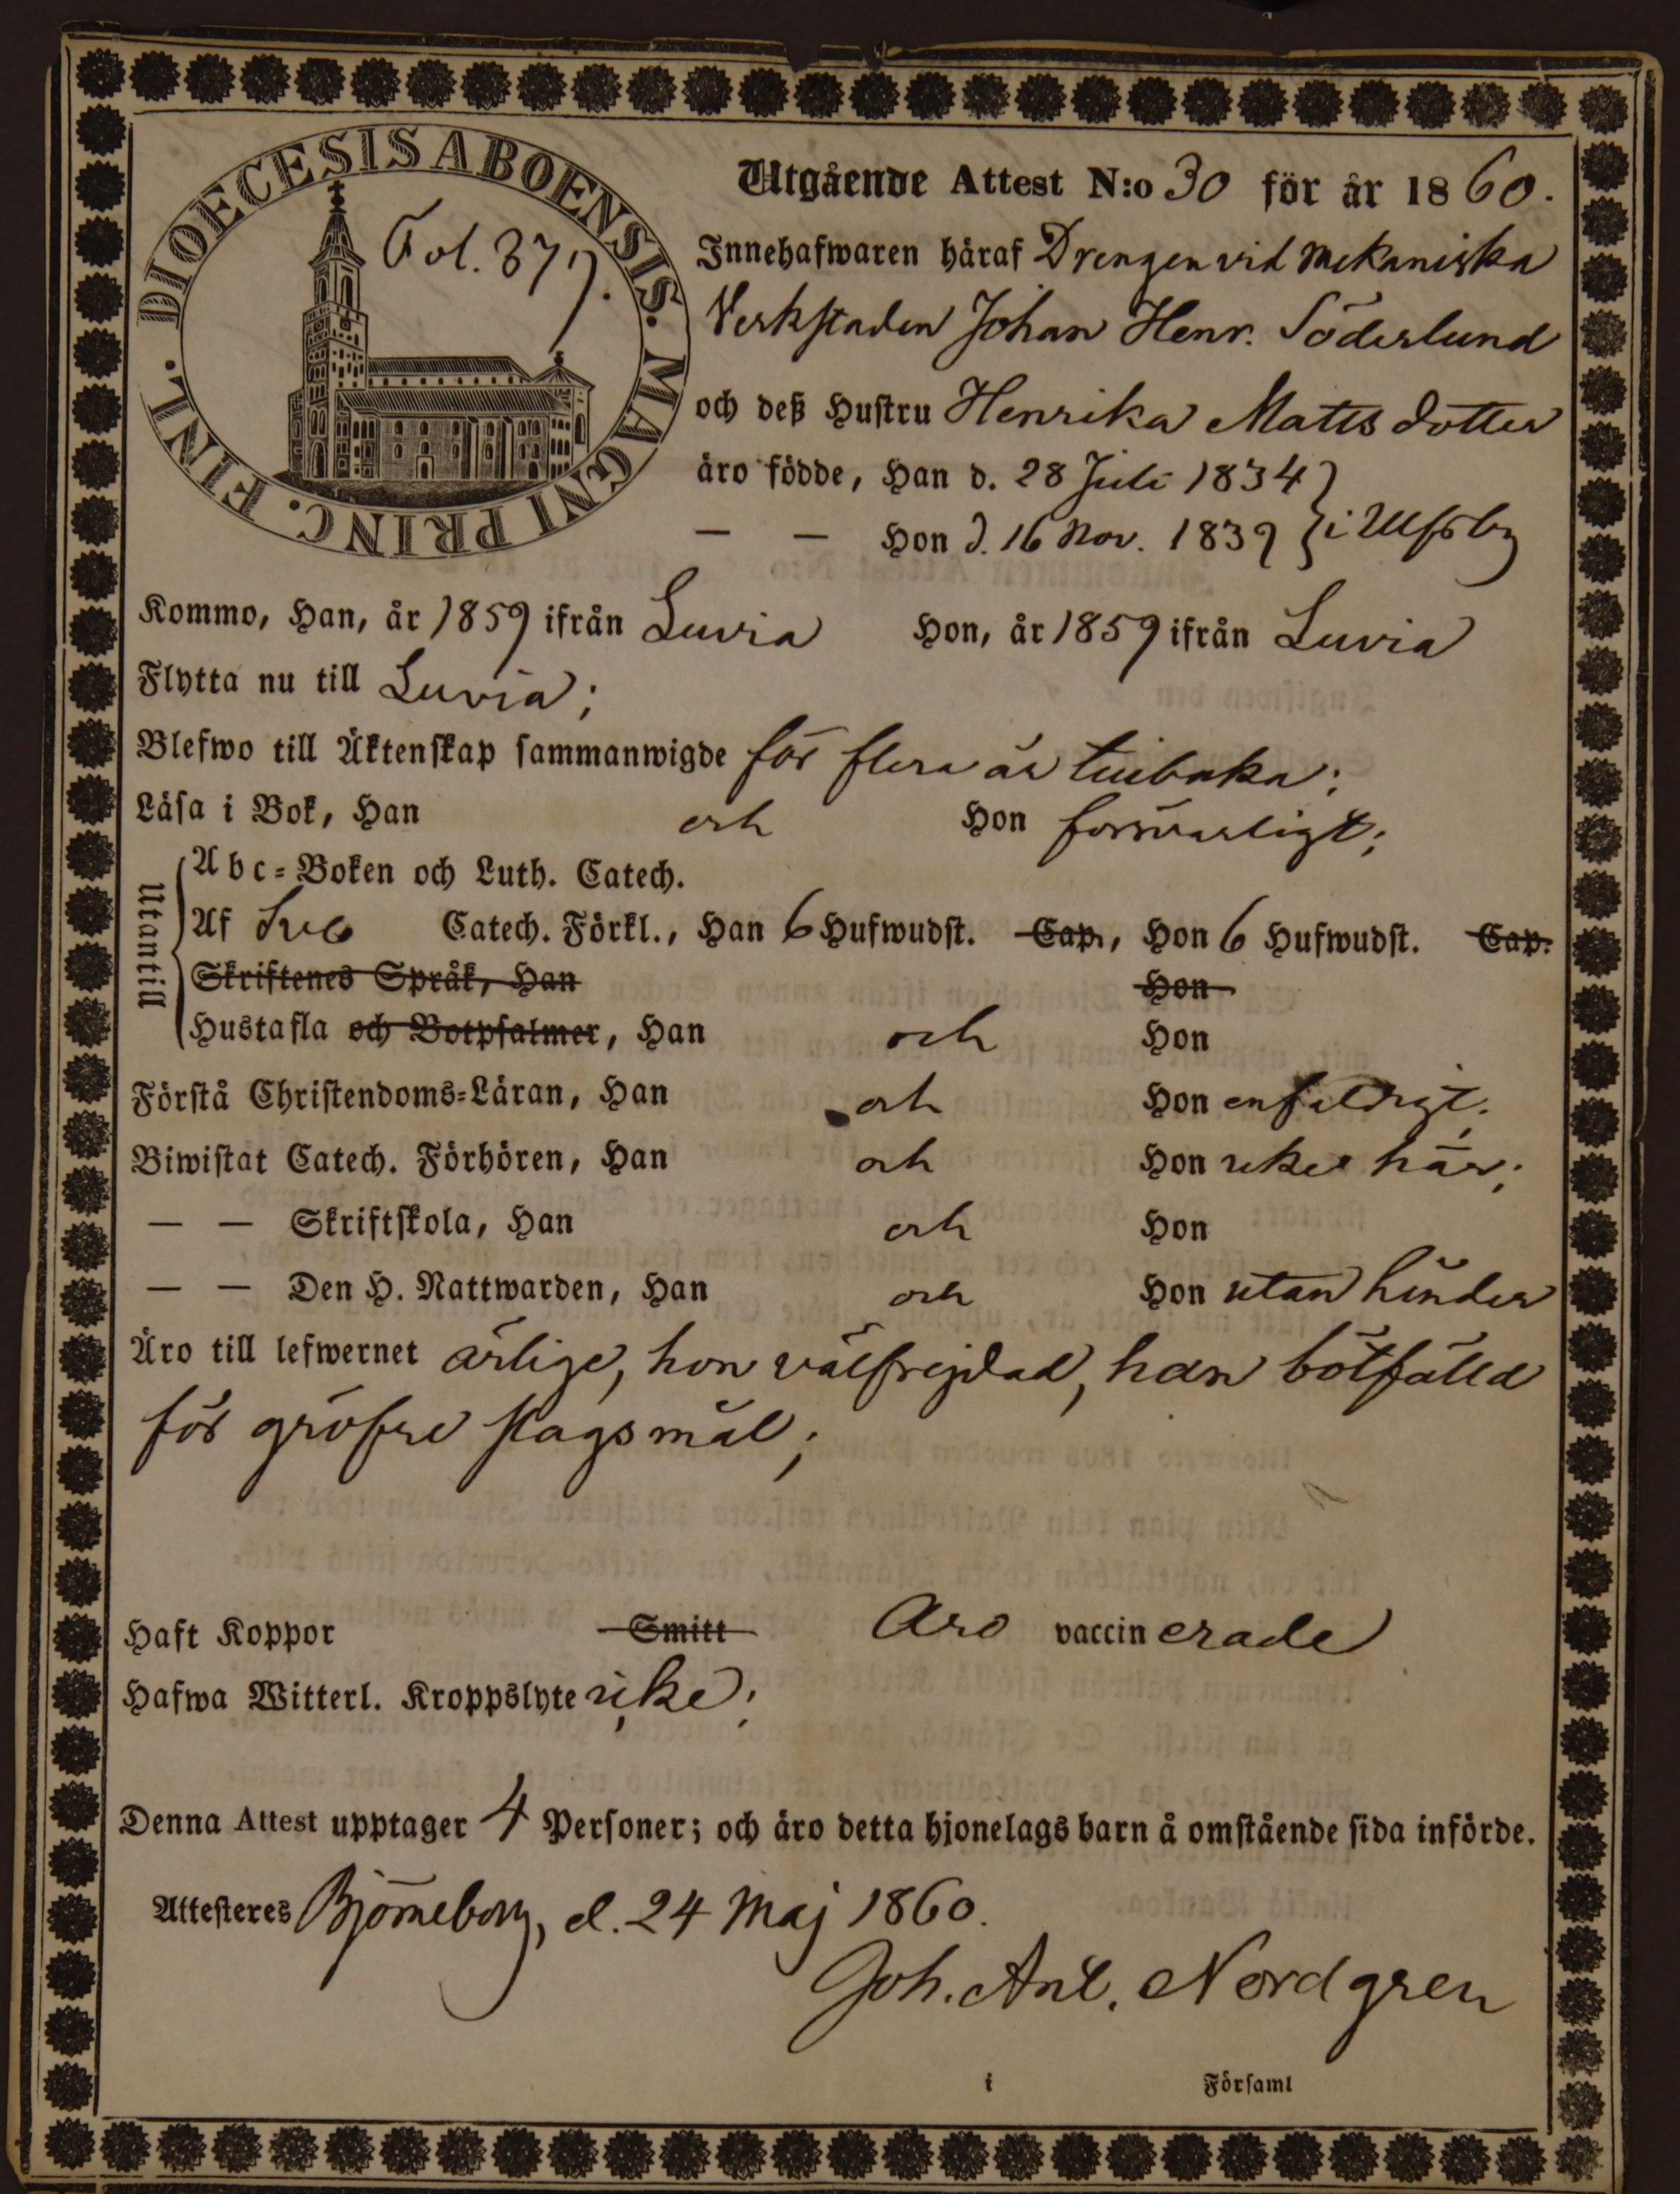 DIOECESIS ABOENSIS. MAGNI PRINC. FINL.
Fol. 379.
Utgående Attest N:o 30 för år 1860.
Innehafwaren häraf Drengen vid Mekaniska
Verkstaden Johan Henr. Söderlund
och deß Hustru Henrika Matts dotter
äro födde, Han d. 28 Juli 1834
— — Hon d. 16 Nov. 1839 } i Ulfsby
Kommo, Han, år 1859 ifrån Luvia Hon, år 1859 ifrån Luvia
Flytta nu till Luvia;
Blefwo till Äktenskap sammanwigde för flera år tillbaka;
Läsa i Bok, Han och Hon försvarligt;
Utantill
Abc-Boken och Luth. Catech.
Af Sveb Catech. Förkl., Han 6 Hufwudst. Cap., Hon 6 Hufwudst. Cap.
Skriftenes Språk, Han Hon
Hustafla och Botpsalmer, Han och Hon
Förstå Christendoms-Läran, Han och Hon enfaldigt;
Biwistat Catech. Förhören, Han och Hon icke här;
— — Skriftskola, Han och Hon
— — Den H. Nattwarden, Han och Hon utan hinder
Äro till lefwernet ärlige, hon välfrejdad, han bötfälld
för gröfre slagsmål;
Haft Koppor Smitt Äro vaccinerade
Hafwa Witterl. Kroppslyte icke;
Denna Attest upptager 4 Personer; och äro detta hjonelags barn å omstående sida införde.
Attesteres Björneborg, d. 24 Maj 1860.
Joh. Ant. Nordgren
i Församl